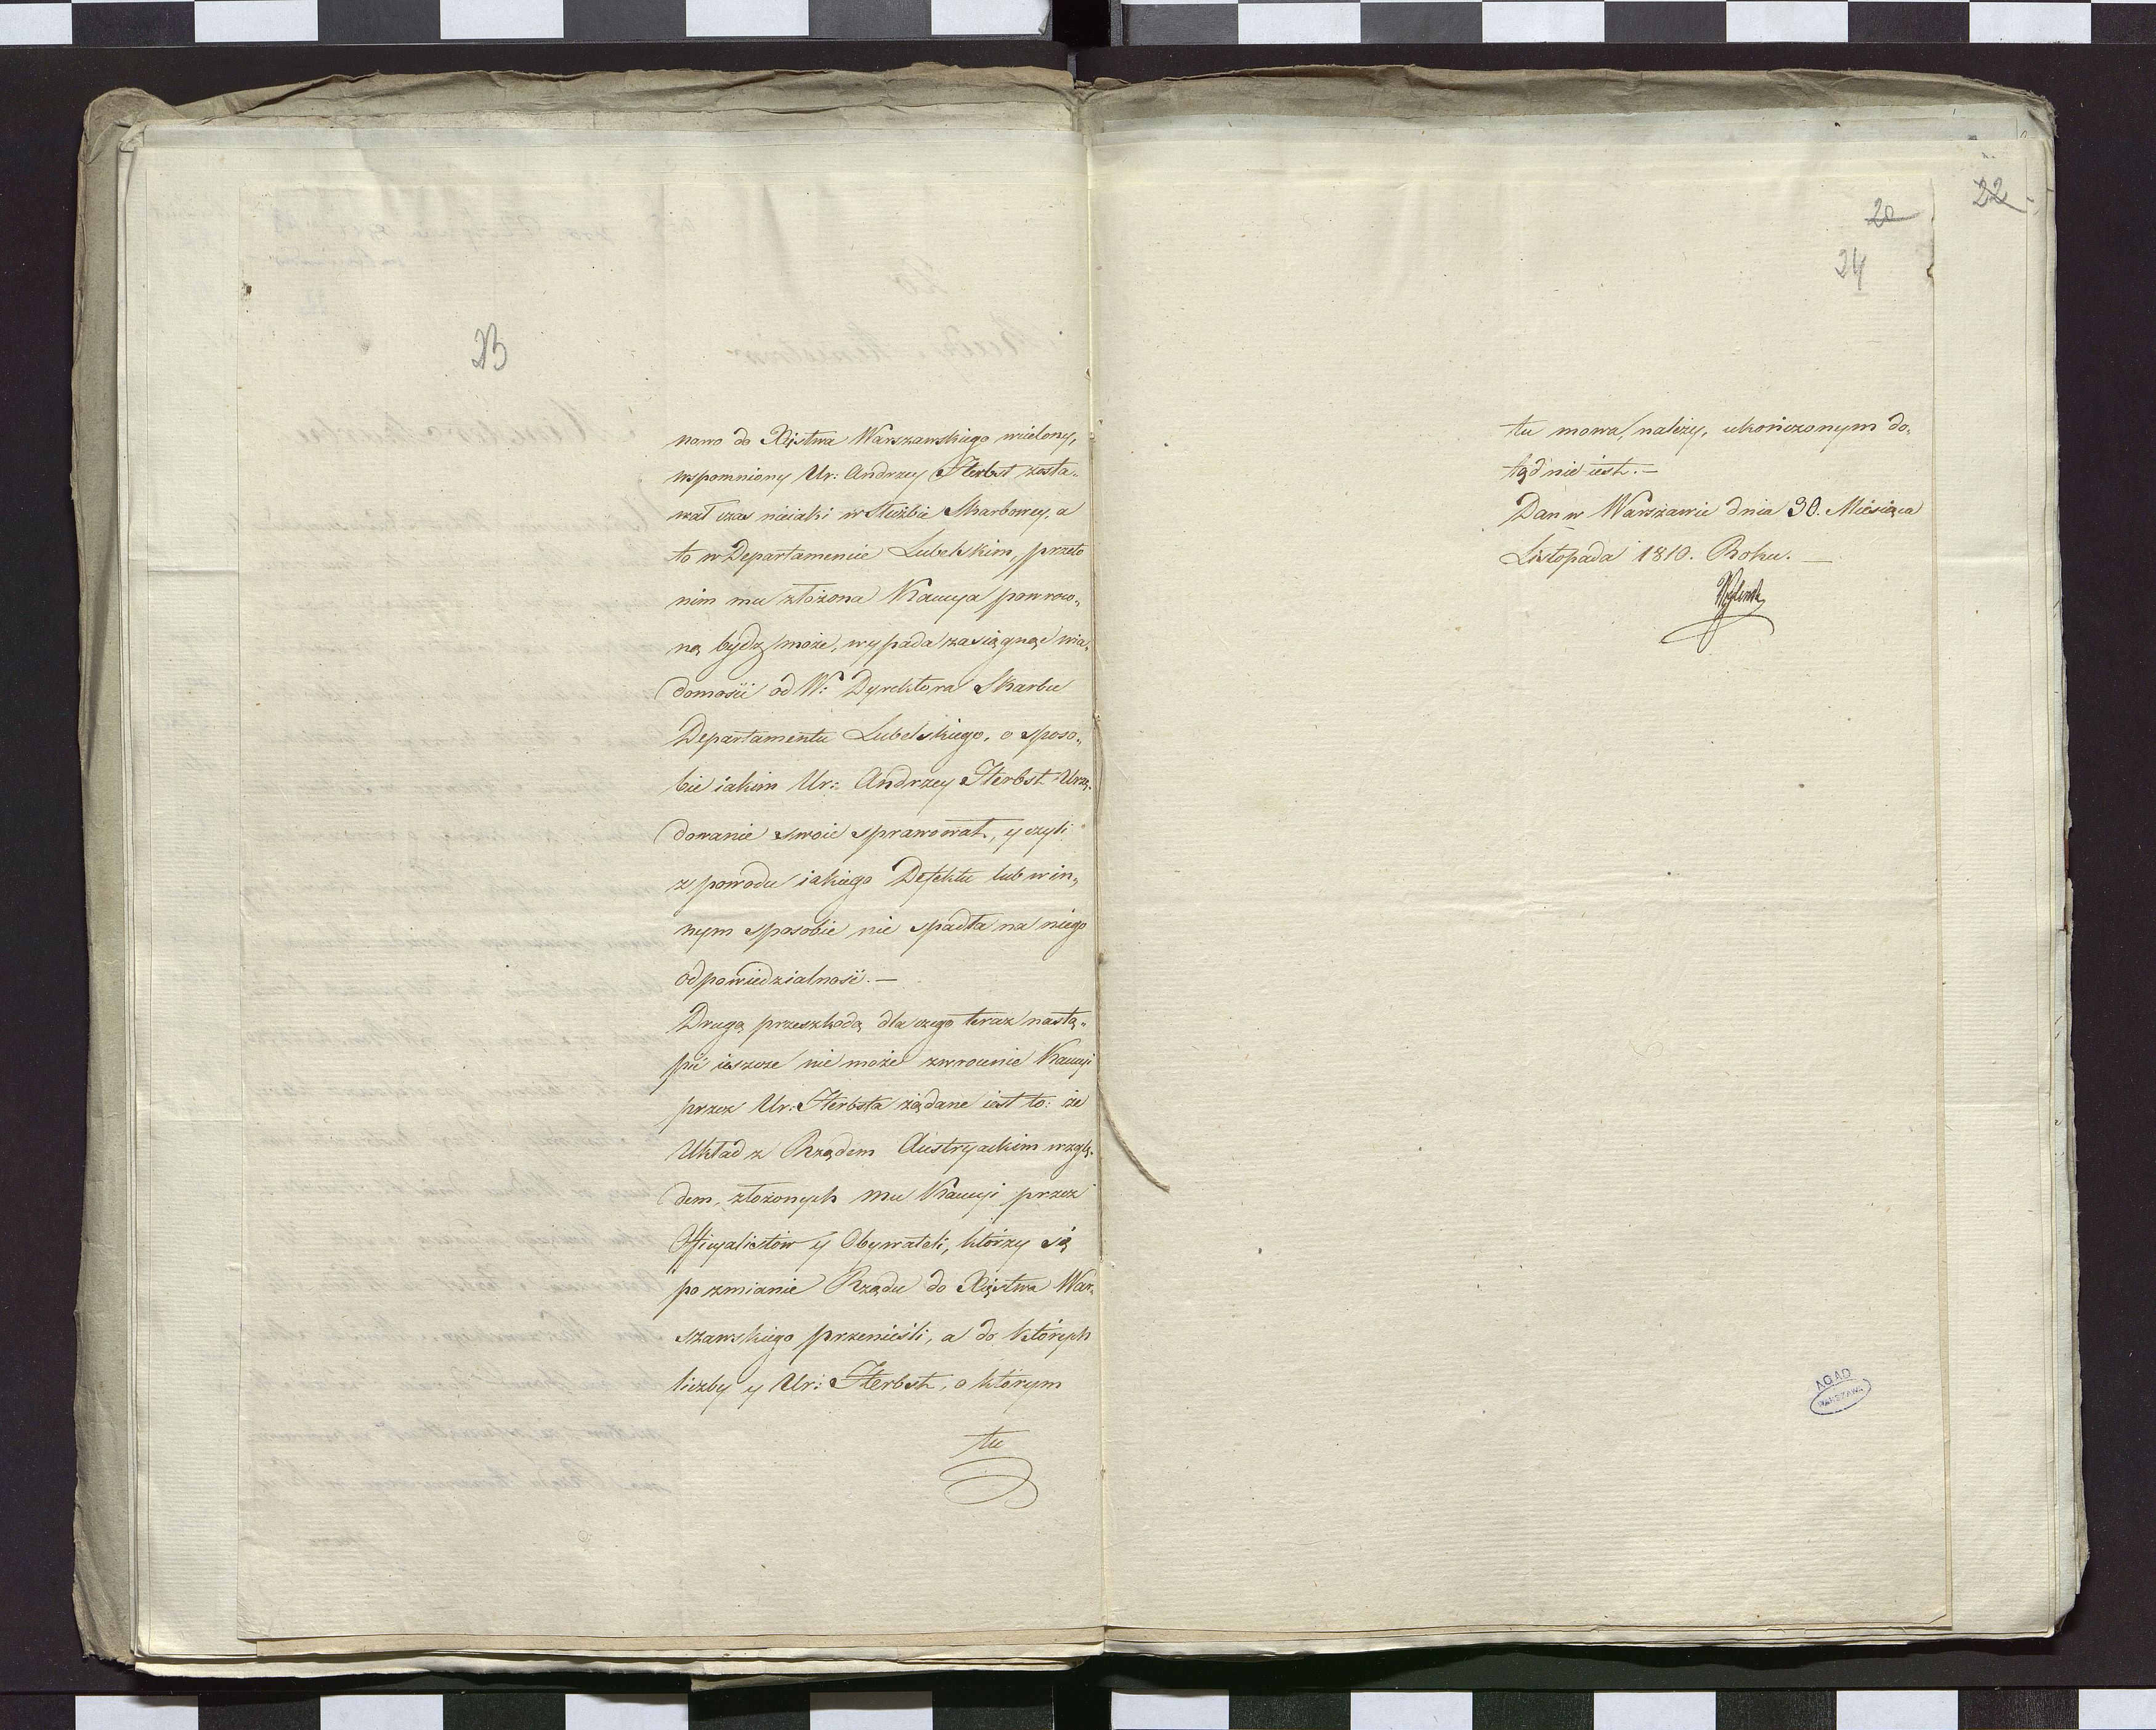 23
nowo do Xięstwa Warszawskiego wcielony,
wspomniony Ur: Andrzey Herbst zosta-
wał czas nieiaki w Służbie Skarbowey, a
to w Departamencie Lubelskim, przeto
nim mu złożona Kaucya powroco-
ną bydz może, wypada zasiągnąć wia-
domości od W: Dyrektora Skarbu
Departamentu Lubelskiego, o sposo-
bie iakim Ur: Andrzey Herbst Urzę-
dowanie swoie sprawował, y czyli
z powodu iakiego Defektu lub w in-
nym sposobie nie spadła na niego
odpowiedzialność.—
Drugą przeszkodą dla czego teraz nastą-
pić ieszcze nie może zwrocenie Kaucyi
przez Ur: Herbsta żądane iest to: że
Układ z Rządem Austryackim wzglę-
dem złożonych mu Kaucyi przez
Officyalistów y Obywateli, którzy się
po zmianie Rządu do Xięstwa War-
szawskiego przenieśli, a do których
liczby y Ur: Herbst, o którym
tu
20
22
24
tu mowa, należy, ukończonym do-
tąd nie iest.—
Dan w Warszawie dnia 30. Miesiąca
Listopada 1810. Roku.—
AGAD
WARSZAWA